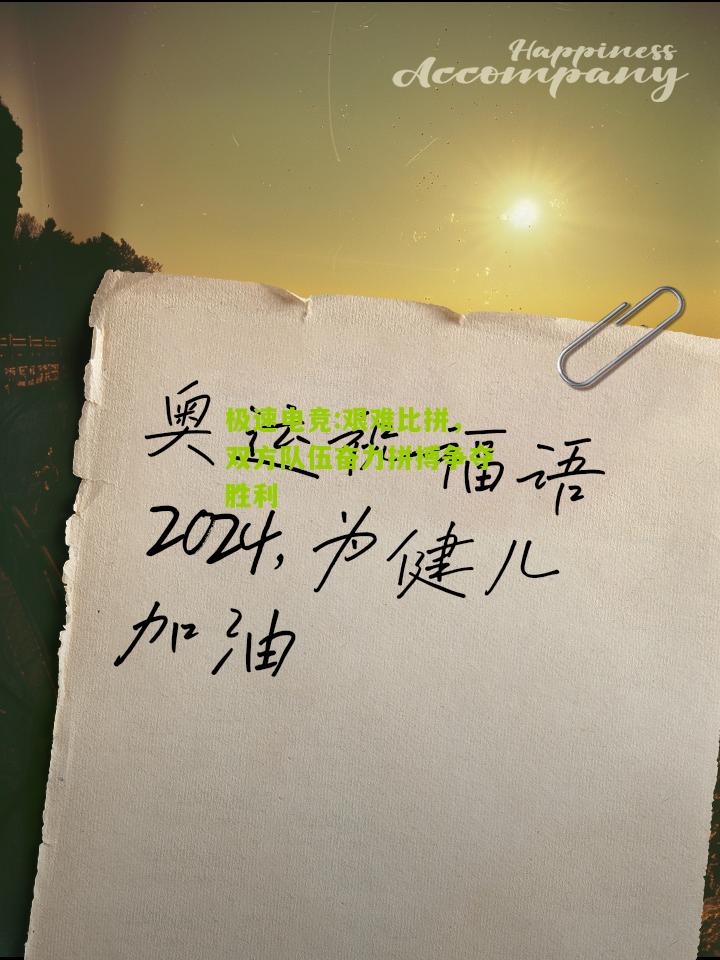 Happiness
Accompany
奥运祝福语
极速电竞:艰难比拼，
双方队伍奋力拼搏争夺
胜利
2024,为健儿
加油